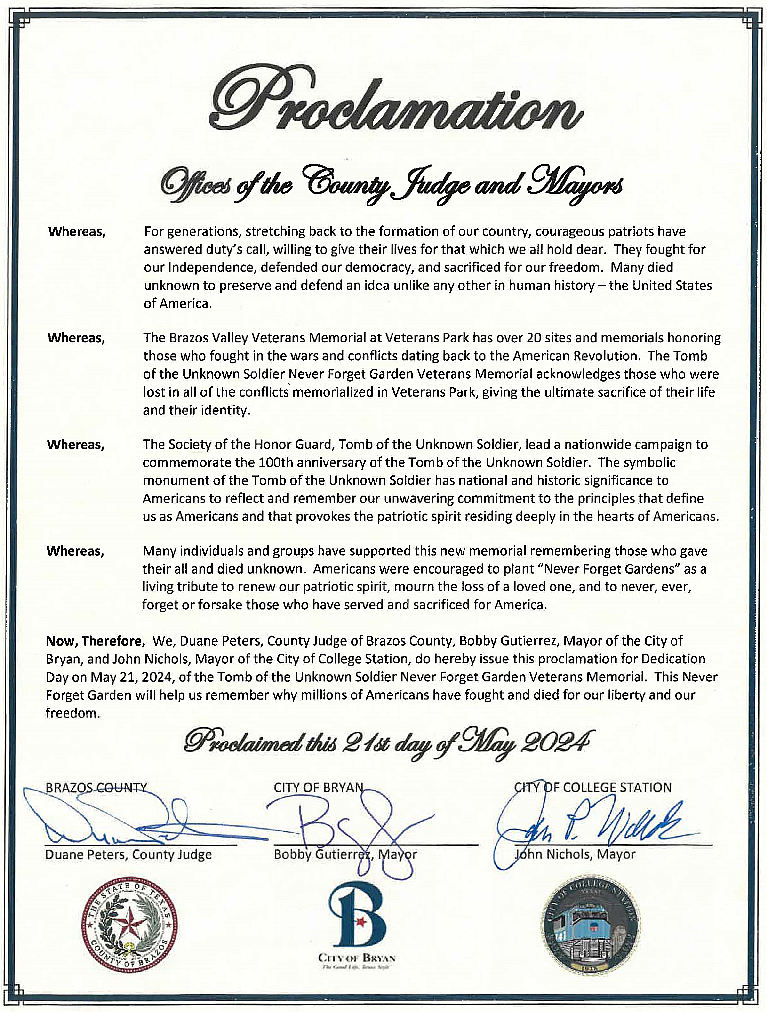 Proclamation
Offices of the County Judge and Mayors
Whereas, For generations, stretching back to the formation of our country, courageous patriots have
answered duty's call, willing to give their lives for that which we all hold dear. They fought for
our Independence, defended our democracy, and sacrificed for our freedom. Many died
unknown to preserve and defend an idea unlike any other in human history – the United States
of America.
Whereas, The Brazos Valley Veterans Memorial at Veterans Park has over 20 sites and memorials honoring
those who fought in the wars and conflicts dating back to the American Revolution. The Tomb
of the Unknown Soldier Never Forget Garden Veterans Memorial acknowledges those who were
lost in all of the conflicts memorialized in Veterans Park, giving the ultimate sacrifice of their life
and their identity.
Whereas, The Society of the Honor Guard, Tomb of the Unknown Soldier, lead a nationwide campaign to
commemorate the 100th anniversary of the Tomb of the Unknown Soldier. The symbolic
monument of the Tomb of the Unknown Soldier has national and historic significance to
Americans to reflect and remember our unwavering commitment to the principles that define
us as Americans and that provokes the patriotic spirit residing deeply in the hearts of Americans.
Whereas, Many individuals and groups have supported this new memorial remembering those who gave
their all and died unknown. Americans were encouraged to plant “Never Forget Gardens” as a
living tribute to renew our patriotic spirit, mourn the loss of a loved one, and to never, ever,
forget or forsake those who have served and sacrificed for America.
Now, Therefore, We, Duane Peters, County Judge of Brazos County, Bobby Gutierrez, Mayor of the City of
Bryan, and John Nichols, Mayor of the City of College Station, do hereby issue this proclamation for Dedication
Day on May 21, 2024, of the Tomb of the Unknown Soldier Never Forget Garden Veterans Memorial. This Never
Forget Garden will help us remember why millions of Americans have fought and died for our liberty and our
freedom.
Proclaimed this 21st day of May 2024
BRAZOS COUNTY CITY OF BRYAN CITY OF COLLEGE STATION
Duane Peters, County Judge Bobby Gutierrez, Mayor John Nichols, Mayor
THE STATE OF TEXAS
COUNTY OF BRAZOS
B
CITY OF BRYAN
The Good Life, Texas Style
CITY OF COLLEGE STATION
1938